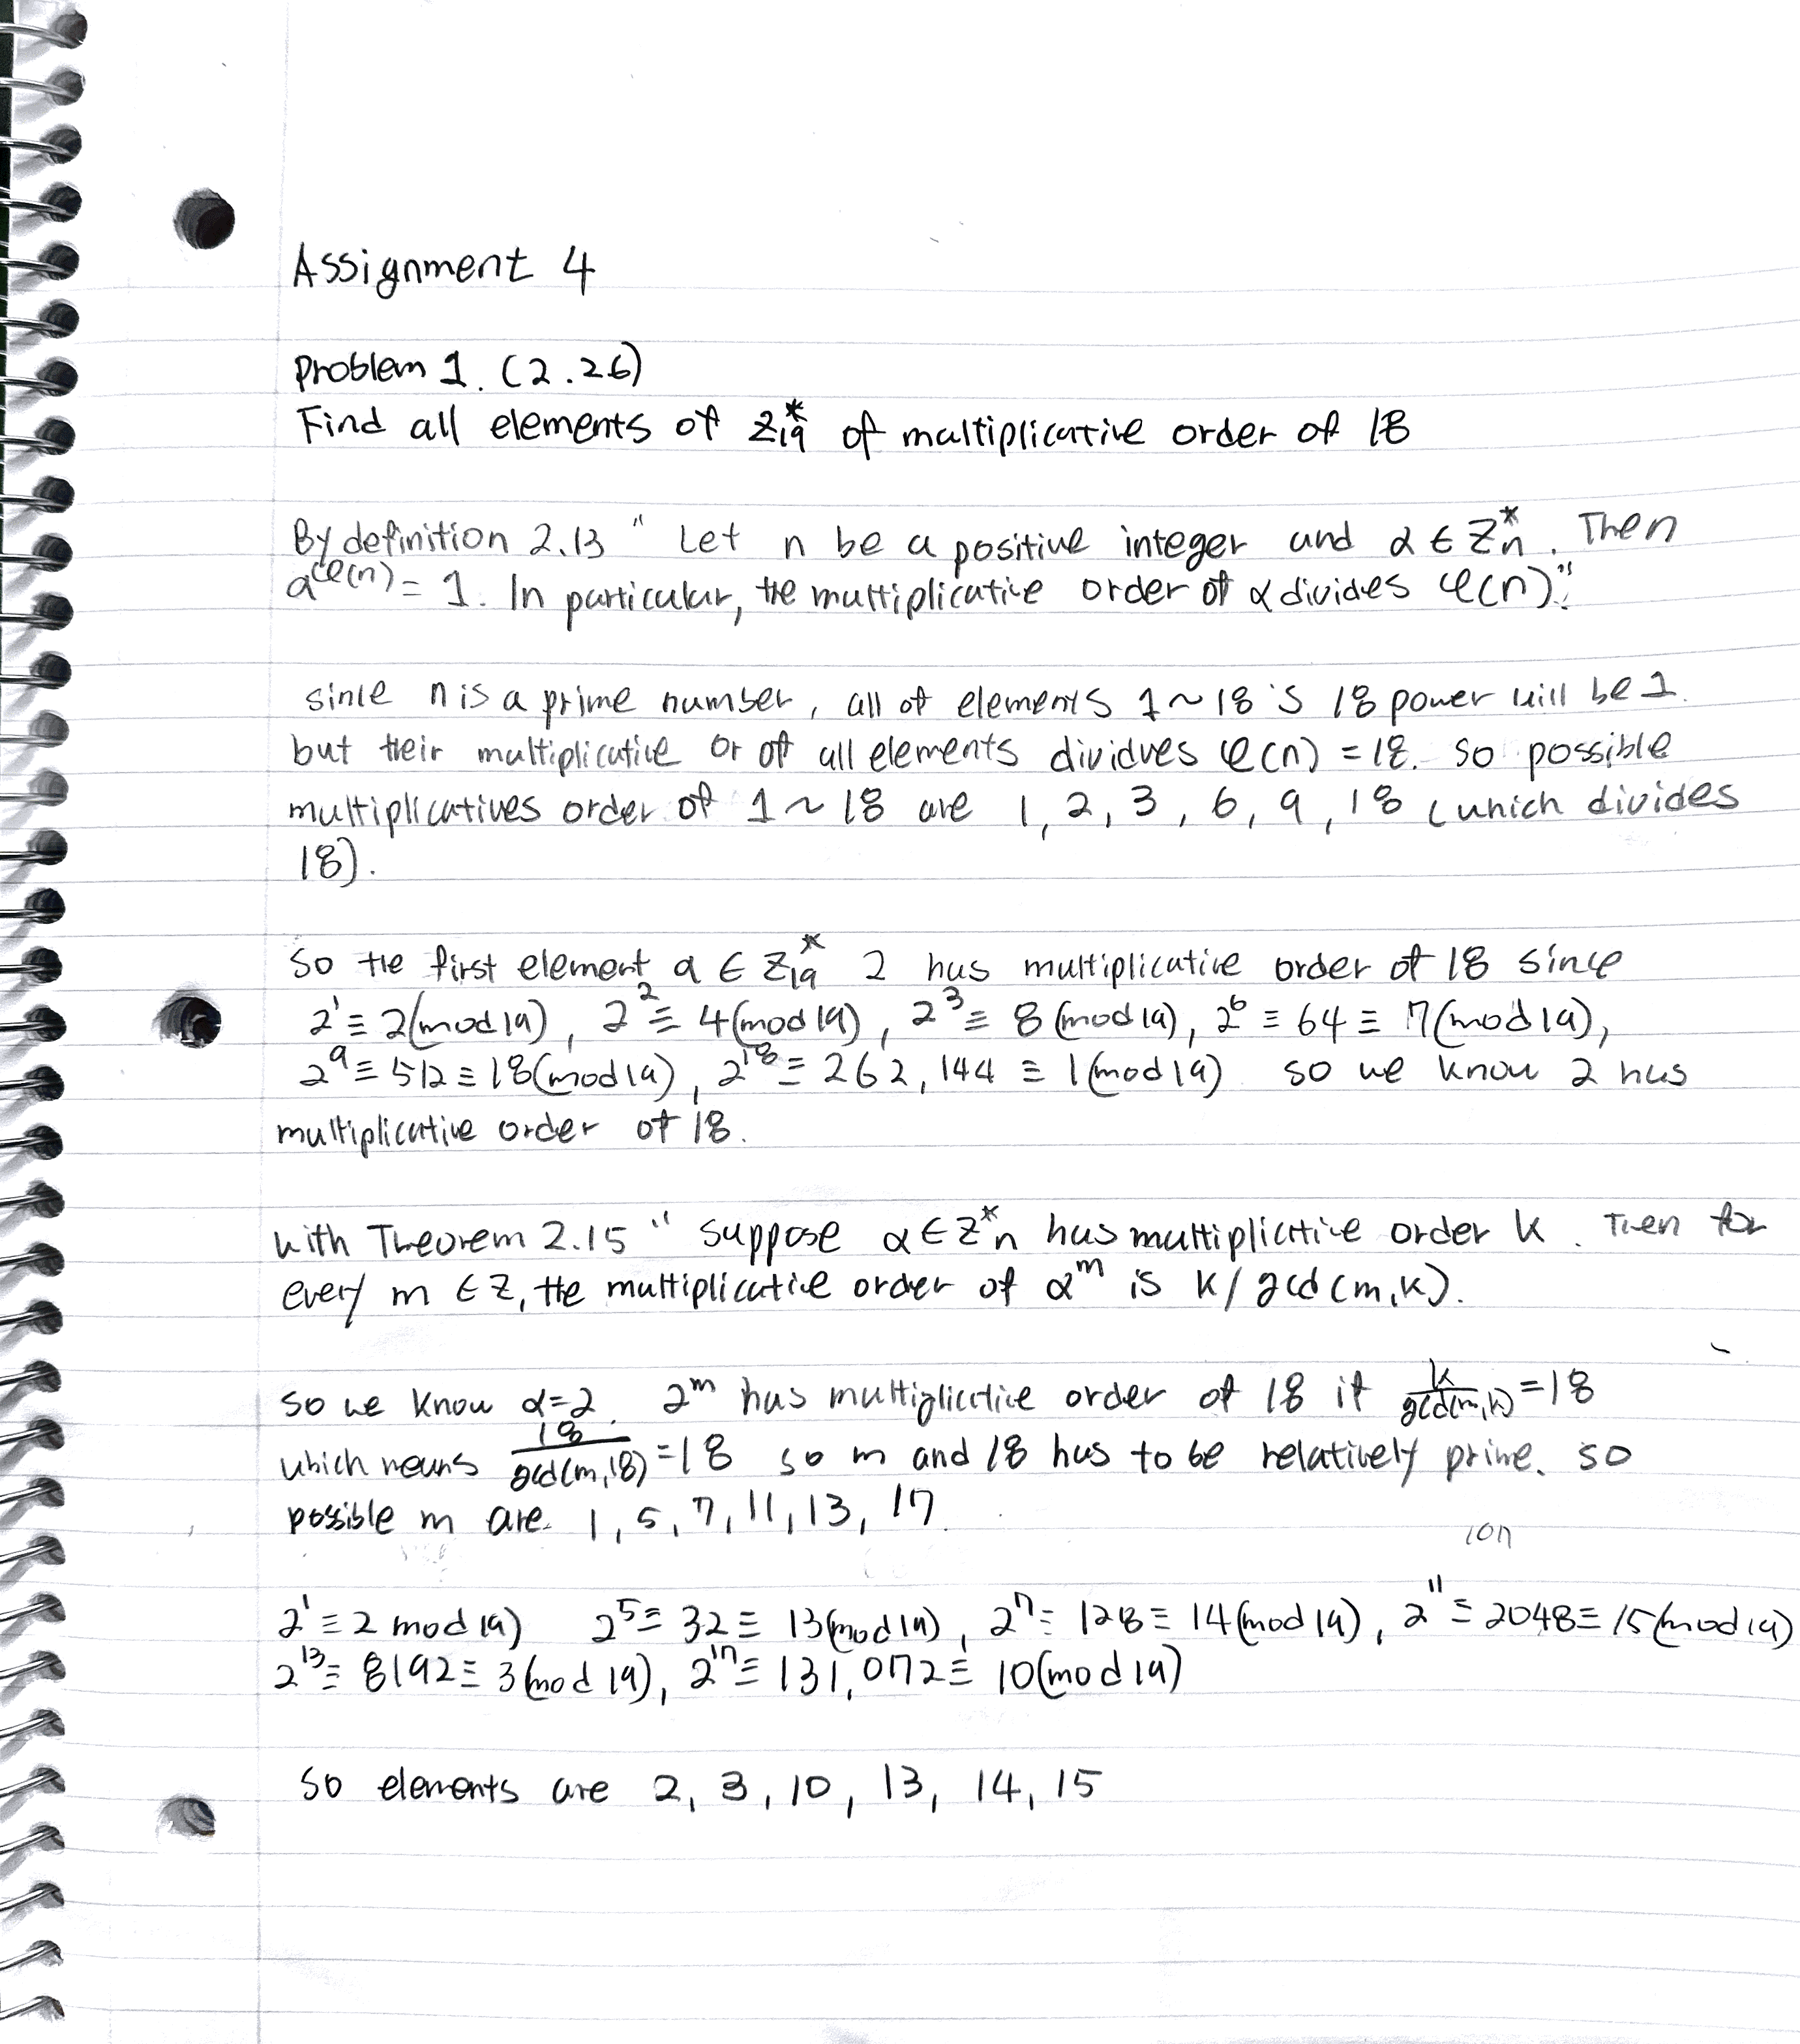 Assignment 4
Problem 1. (2.26)
Find all elements of Z*19 of multiplicative order of 18
By definition 2.13 " Let n be a positive integer and α ∈ Z*n. Then
a^φ(n) = 1. In particular, the multiplicative order of α divides φ(n)."
since n is a prime number, all of elements 1~18's 18 power will be 1.
but their multiplicative or of all elements dividves φ(n) = 18. so possible
multiplicatives order of 1~18 are 1, 2, 3, 6, 9, 18 (which divides
18).
So the first element a ∈ Z*19 2 has multiplicative order of 18 since
2^1 ≡ 2(mod 19), 2^2 ≡ 4(mod 19), 2^3 ≡ 8 (mod 19), 2^6 ≡ 64 ≡ 7(mod 19),
2^9 ≡ 512 ≡ 18(mod 19), 2^18 ≡ 262,144 ≡ 1(mod 19) so we know 2 has
multiplicative order of 18.
with Theorem 2.15 " suppose α ∈ Z*n has multiplictive order k. Then for
every m ∈ Z, the multiplicative order of α^m is k/gcd(m,k).
so we know α=2. 2^m has multiplictive order of 18 if k/gcd(m,k) = 18
which means 18/gcd(m,18) = 18 so m and 18 has to be relatively prime. so
possible m are 1, 5, 7, 11, 13, 17.
107
2^1 ≡ 2 mod 19) 2^5 ≡ 32 ≡ 13(mod 19), 2^7 = 128 ≡ 14(mod 19), 2^11 ≡ 2048 ≡ 15(mod 19)
2^13 ≡ 8192 ≡ 3(mod 19), 2^17 ≡ 131,072 ≡ 10(mod 19)
So elements are 2, 3, 10, 13, 14, 15